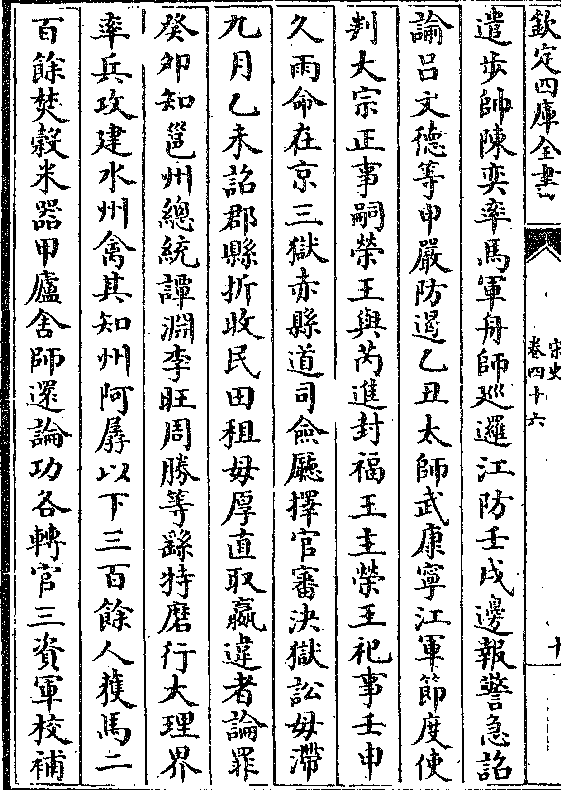 欽定四庫全書
宋史
卷四十六
十
遣步帥陳奕率馬軍舟師巡邏江防壬戌邊報警急詔
諭吕文德等申嚴防遏乙丑太師武康寧江軍節度使
判大宗正事嗣榮王與芮進封福王主榮王祀事壬申
久雨命在京三獄赤縣直司僉廳擇官審決獄訟毋滯
九月乙未詔郡縣折收民田租毋厚直取嬴違者論罪
癸卯知邕州總統譚淵李旺周勝等繇特磨行大理界
率兵攻建水州禽其知州阿孱以下三百餘人獲馬二
百餘焚穀米器甲廬舍師還論功各轉官三資軍校補